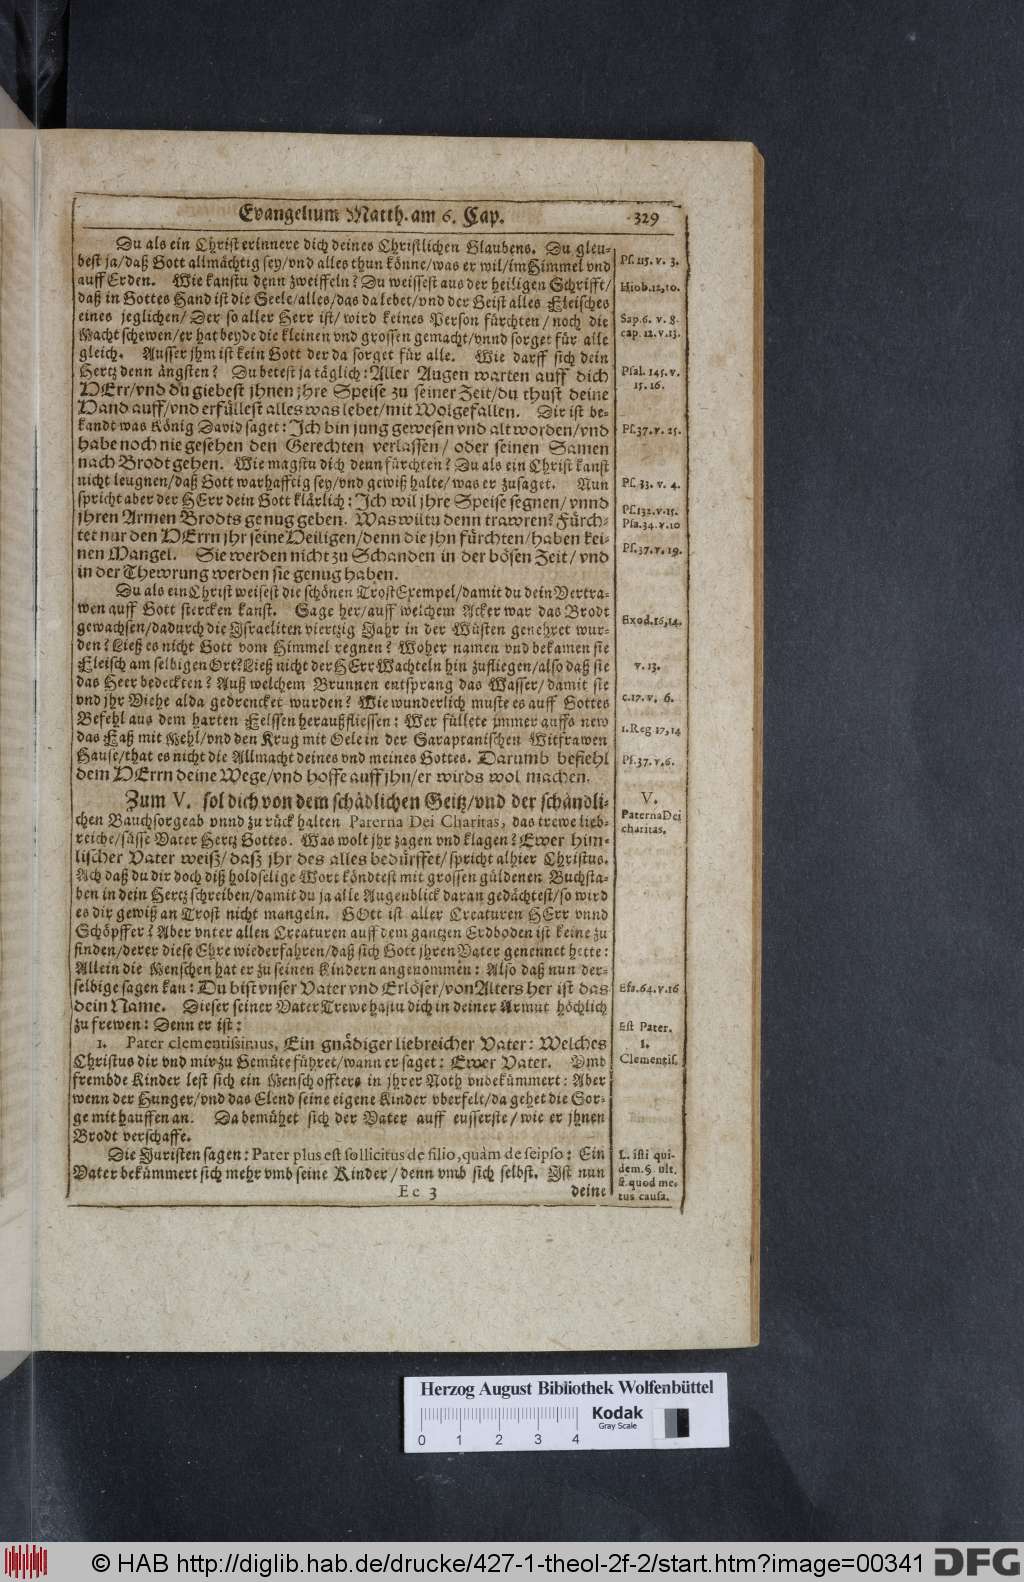 Evangelium Matth. am 6. Cap. 329
Du als ein Christ erinnere dich deines Christlichen Glaubens. Du gleu-
best ja/daß Gott allmächtig sey/vnd alles thun könne/was er wil/im Himmel vnd
auff Erden. Wie kanstu denn zweiffeln? Du weissest aus der heiligen Schrifft/
daß in Gottes Hand ist die Seele/alles/das da lebet/vnd der Geist alles Fleisches
eines jeglichen/ Der so aller Herr ist/ wird keines Person fürchten/ noch die
Macht schewen/er hat beyde die kleinen vnd grossen gemacht/vnnd sorget für alle
gleich. Ausser jhm ist kein Gott der da sorget für alle. Wie darff sich dein
Hertz denn ängsten? Du betest ja täglich: Aller Augen warten auff dich
HErr/vnd du giebest jhnen jhre Speise zu seiner Zeit/du thust deine
Hand auff/vnd erfüllest alles was lebet/mit Wolgefallen. Dir ist be-
kandt was König David saget: Ich bin jung gewesen vnd alt worden/vnd
habe noch nie gesehen den Gerechten verlassen/ oder seinen Samen
nach Brodt gehen. Wie magstu dich denn fürchten? Du als ein Christ kanst
nicht leugnen/daß Gott warhafftig sey/vnd gewiß halte/was er zusaget. Nun
spricht aber der HErr dein Gott klärlich: Ich wil jhre Speise segnen/ vnnd
jhren Armen Brodts genug geben. Was wiltu denn trawren? Fürch-
tet nur den HErrn jhr seine Heiligen/denn die jhn fürchten/haben kei-
nen Mangel. Sie werden nicht zu Schanden in der bösen Zeit/ vnd
in der Thewrung werden sie genug haben.
Du als ein Christ weisest die schönen Trost Exempel/damit du dein Vertra-
wen auff Gott stercken kanst. Sage her/auff welchem Acker war das Brodt
gewachsen/dadurch die Israeliten viertzig Jahr in der Wüsten genehret wur-
den? Ließ es nicht Gott vom Himmel regnen? Woher namen vnd bekamen sie
Fleisch am selbigen Ort? Ließ nicht der HErr Wachteln hin zufliegen/also daß sie
das Heer bedeckten? Auß welchem Brunnen entsprang das Wasser/ damit sie
vnd jhr Viehe alda gedrencket wurden? Wie wunderlich muste es auff Gottes
Befehl aus dem harten Felssen heraußfliessen: Wer füllete jmmer auffs new
das Faß mit Mehl/vnd den Krug mit Oele in der Saraptanischen Witfrawen
Hause/that es nicht die Allmacht deines vnd meines Gottes. Darumb befiehl
dem HErrn deine Wege/vnd hoffe auff jhn/er wirds wol machen.
Zum V. sol dich von dem schädlichen Geitz/vnd der schändli-
chen Bauchsorge ab vnnd zu rück halten Paterna Dei Charitas, das trewe lieb-
reiche/süsse Vater Hertz Gottes. Was wolt jhr zagen vnd klagen? Ewer him-
lischer Vater weiß/ daß jhr des alles bedürffet/ spricht alhier Christus.
Ach daß du dir doch diß holdselige Wort köndtest mit grossen güldenen Buchsta-
ben in dein Hertz schreiben/damit du ja alle Augenblick daran gedächtest/so wird
es dir gewiß an Trost nicht mangeln. GOtt ist aller Creaturen HErr vnnd
Schöpffer? Aber vnter allen Creaturen auff dem gantzen Erdboden ist keine zu
finden/derer diese Ehre wiederfahren/daß sich Gott jhren Vater genennet hette:
Allein die Menschen hat er zu seinen Kindern angenommen: Also daß nun der-
selbige sagen kan: Du bist vnser Vater vnd Erlöser/von Alters her ist das
dein Name. Dieser seiner Vater Trewe hastu dich in deiner Armut höchlich
zu frewen: Denn er ist:
1. Pater clementissimus, Ein gnädiger liebreicher Vater: Welches
Christus dir vnd mir zu Gemüte führet/wann er saget: Ewer Vater. Vmb
frembde Kinder lest sich ein Mensch offters in jhrer Noth vnbekümmert: Aber
wenn der Hunger/vnd das Elend seine eigene Kinder vberfelt/da gehet die Sor-
ge mit hauffen an. Da bemühet sich der Vater auff eusserste/ wie er jhnen
Brodt verschaffe.
Die Juristen sagen: Pater plus est sollicitus de filio, quàm de seipso: Ein
Vater bekümmert sich mehr vmb seine Kinder/ denn vmb sich selbst. Ist nun
Ee 3 deine
Ps. 115. v. 3.
Hiob. 12, 10.
Sap. 6. v. 8.
cap. 12. v. 13.
Psal. 145. v.
15. 16.
Ps. 37. v. 25.
Ps. 33. v. 4.
Ps. 132. v. 15.
Psa. 34. v. 10
Ps. 37. v. 19.
Exod. 16, 14.
v. 13.
c. 17. v. 6.
1. Reg 17, 14
Ps. 37. v. 6.
V.
Paterna Dei
charitas.
Esa. 64. v. 16
Est Pater.
1.
Clementis.
L. isti qui-
dem. §. ult.
ff. quod me-
tus causa.
Herzog August Bibliothek Wolfenbüttel
Kodak
Gray Scale
0 1 2 3 4
© HAB http://diglib.hab.de/drucke/427-1-theol-2f-2/start.htm?image=00341 DFG